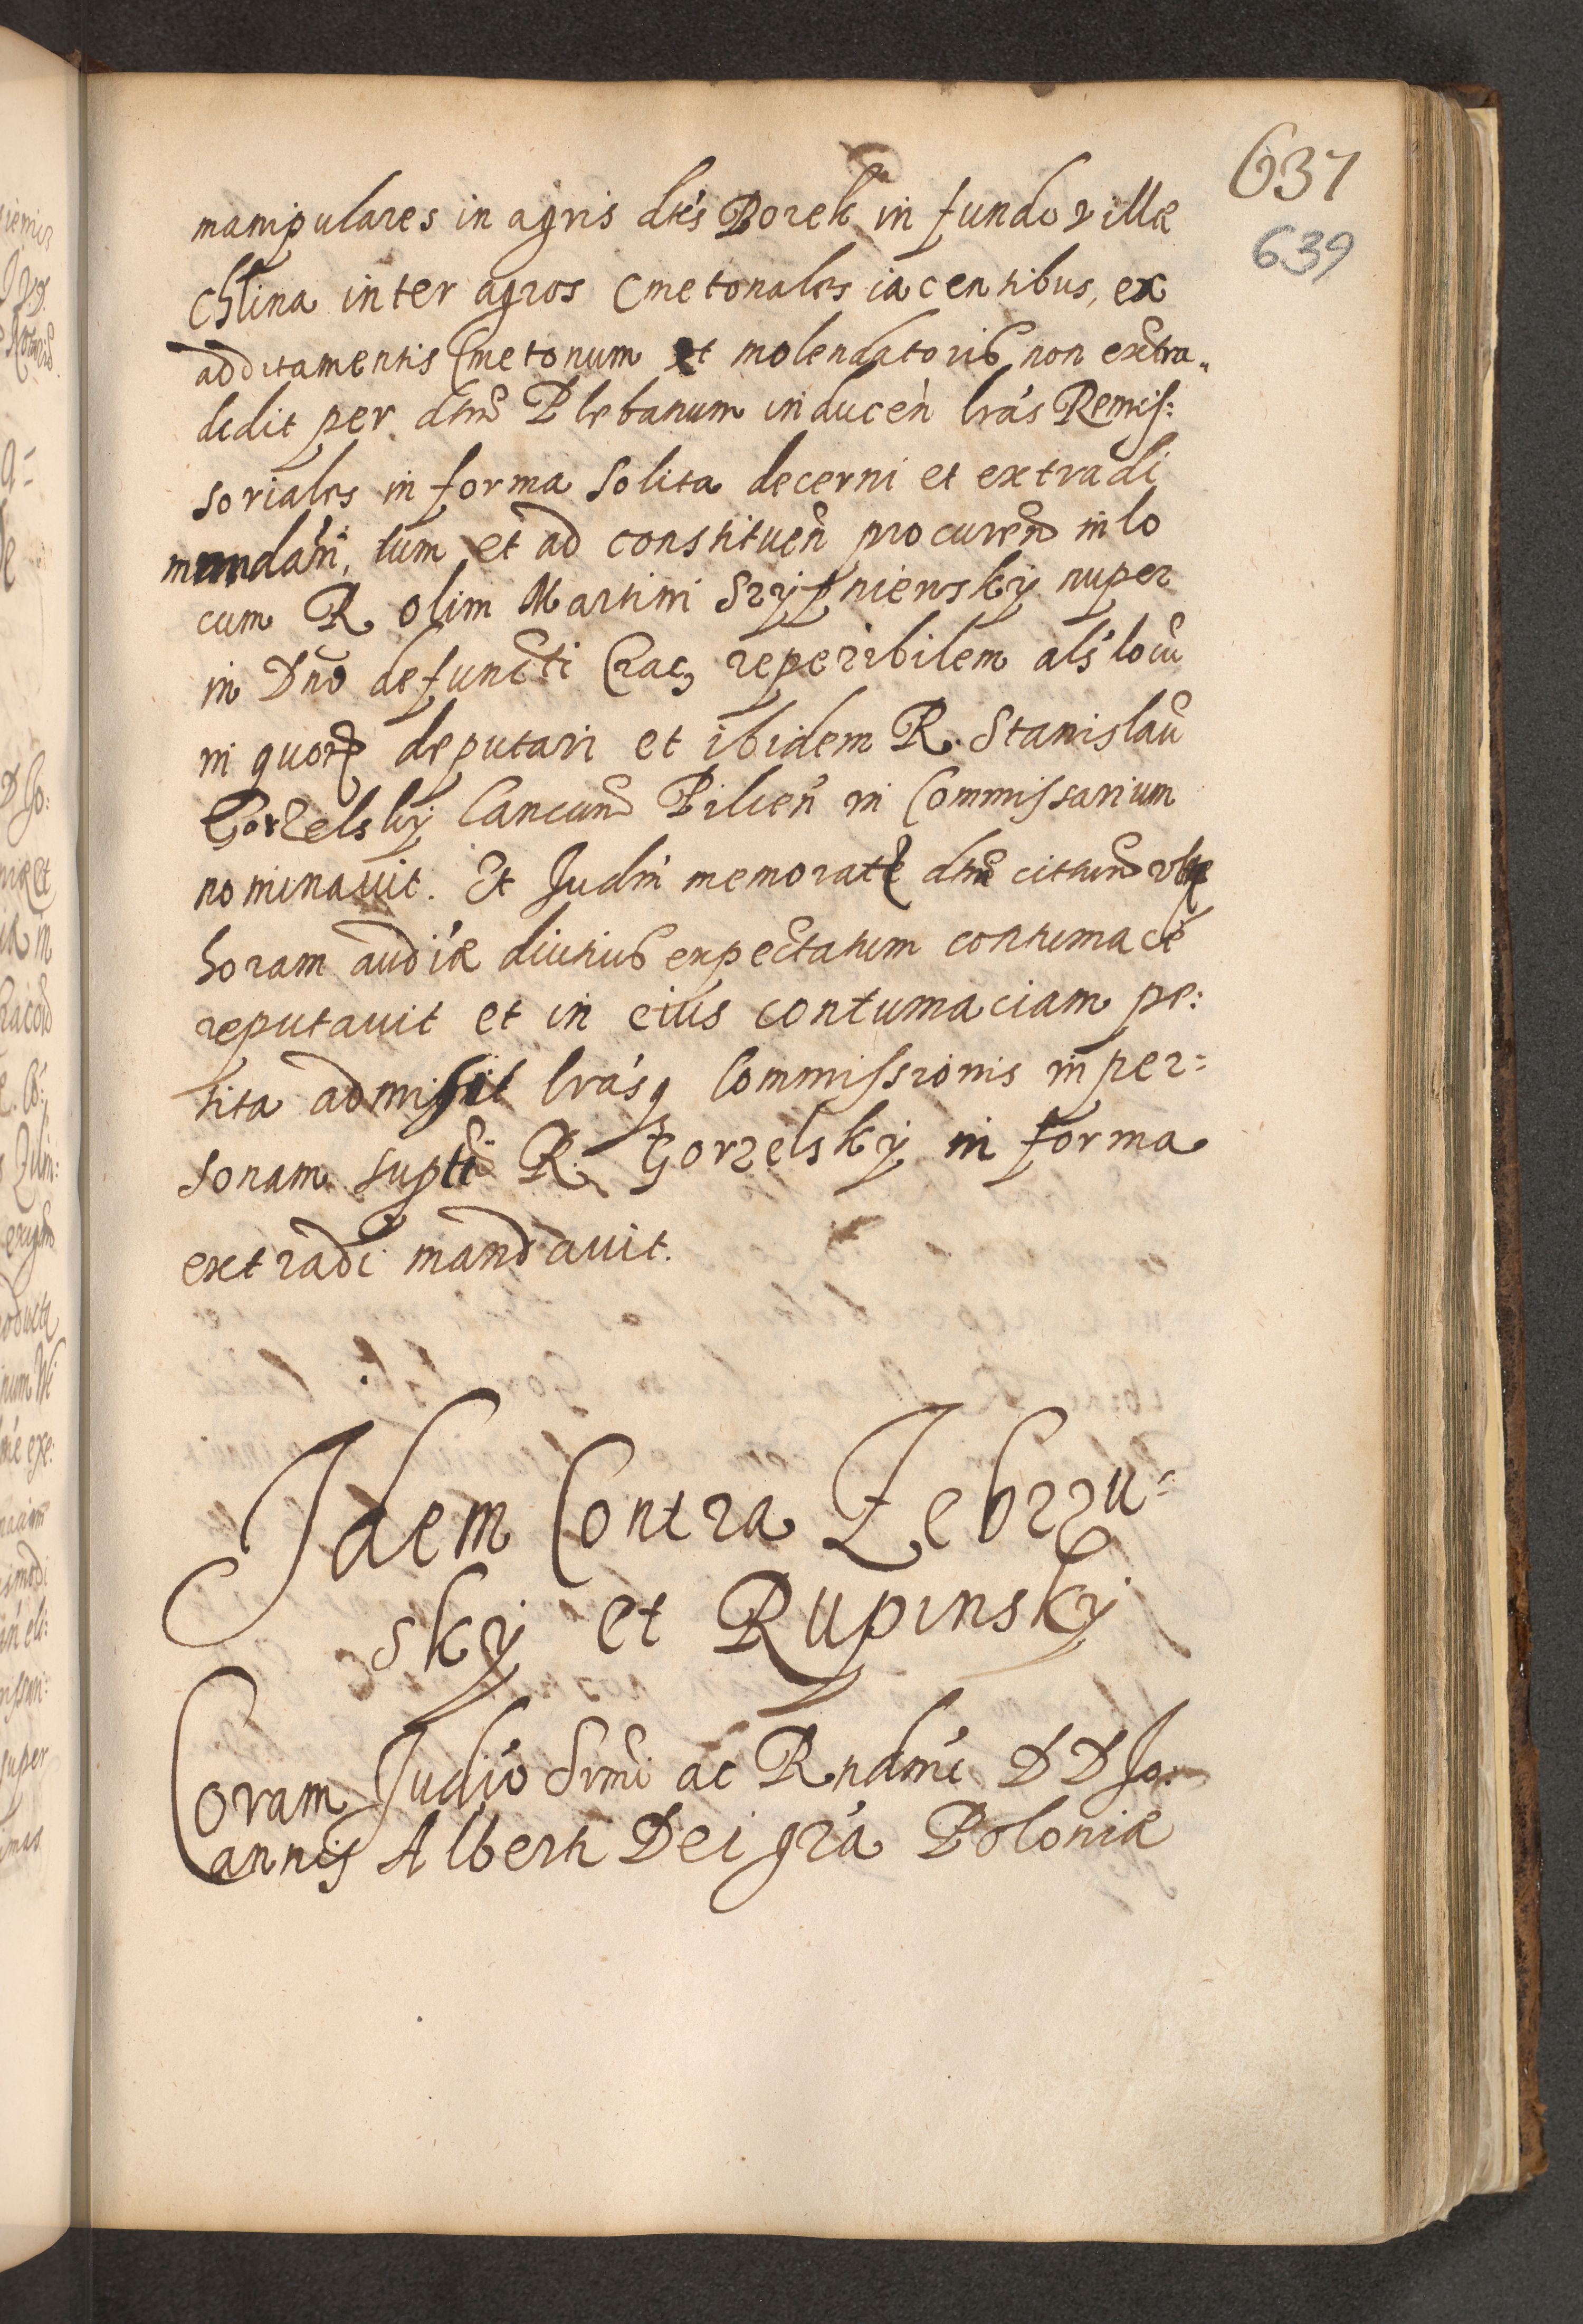 637
639
manipulares in agris dtis Borek in fundo villæ
Chlina inter agros Cmetonales iacentibus, ex
additamentis Cmetonum et molendatorib non extra„
dedit per dnm Plebanum inducen lras Remis:
soriales in forma solita decerni et extradi
mandari, tum et ad constituen procurem in lo
cum R. olim Martini nuper
in Dno defuncti Crac, reperibilem als locu
in quorz deputari et ibidem R. Stanislau
Gorzelsky Cancum Pilcen in Commissarium
nominavit. Et Judm memorate dnm citum
horam audiæ diutius expectatum contumace
reputavit et in eius contumaciam pe:
tita admisit lrasq Commissionis in per=
sonam supti R. Gorzelsky in forma
extradi mandavit.
Idem Contra Zebrzu=
sky et Rupinsky
Coram Judio Srmi ac Rndmi D D Jo:
annis Alberti Dei gra Poloniæ